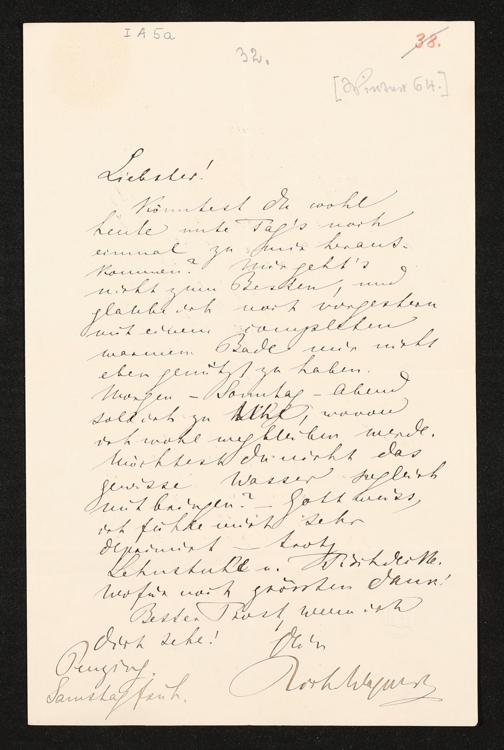 I A 5a
32.
38.
[Winter 64.]
Liebster!
Könntest du wohl
heute unter Tag's noch
einmal zu mir heraus-
kommen? Mir geht's
nicht zum Besten, und
glaube ich noch vorgestern
mit einem completen
warmen Bade mir nicht
eben genützt zu haben.
Morgen – Sonntag – Abend
soll ich zu Uhl, wovon
ich wohl wegbleiben werde.
Möchtest du nicht das
gewisse Wasser sogleich
mitbringen? – Gott weiss,
ich fühle mich sehr
deprimirt – trotz
Lehnstuhl u. Tischdecke.
wofür noch grössten Dank!
Bester Trost, wenn ich
dich sehe!
Dein
Rich Wagner
Penzing.
Samstag früh.